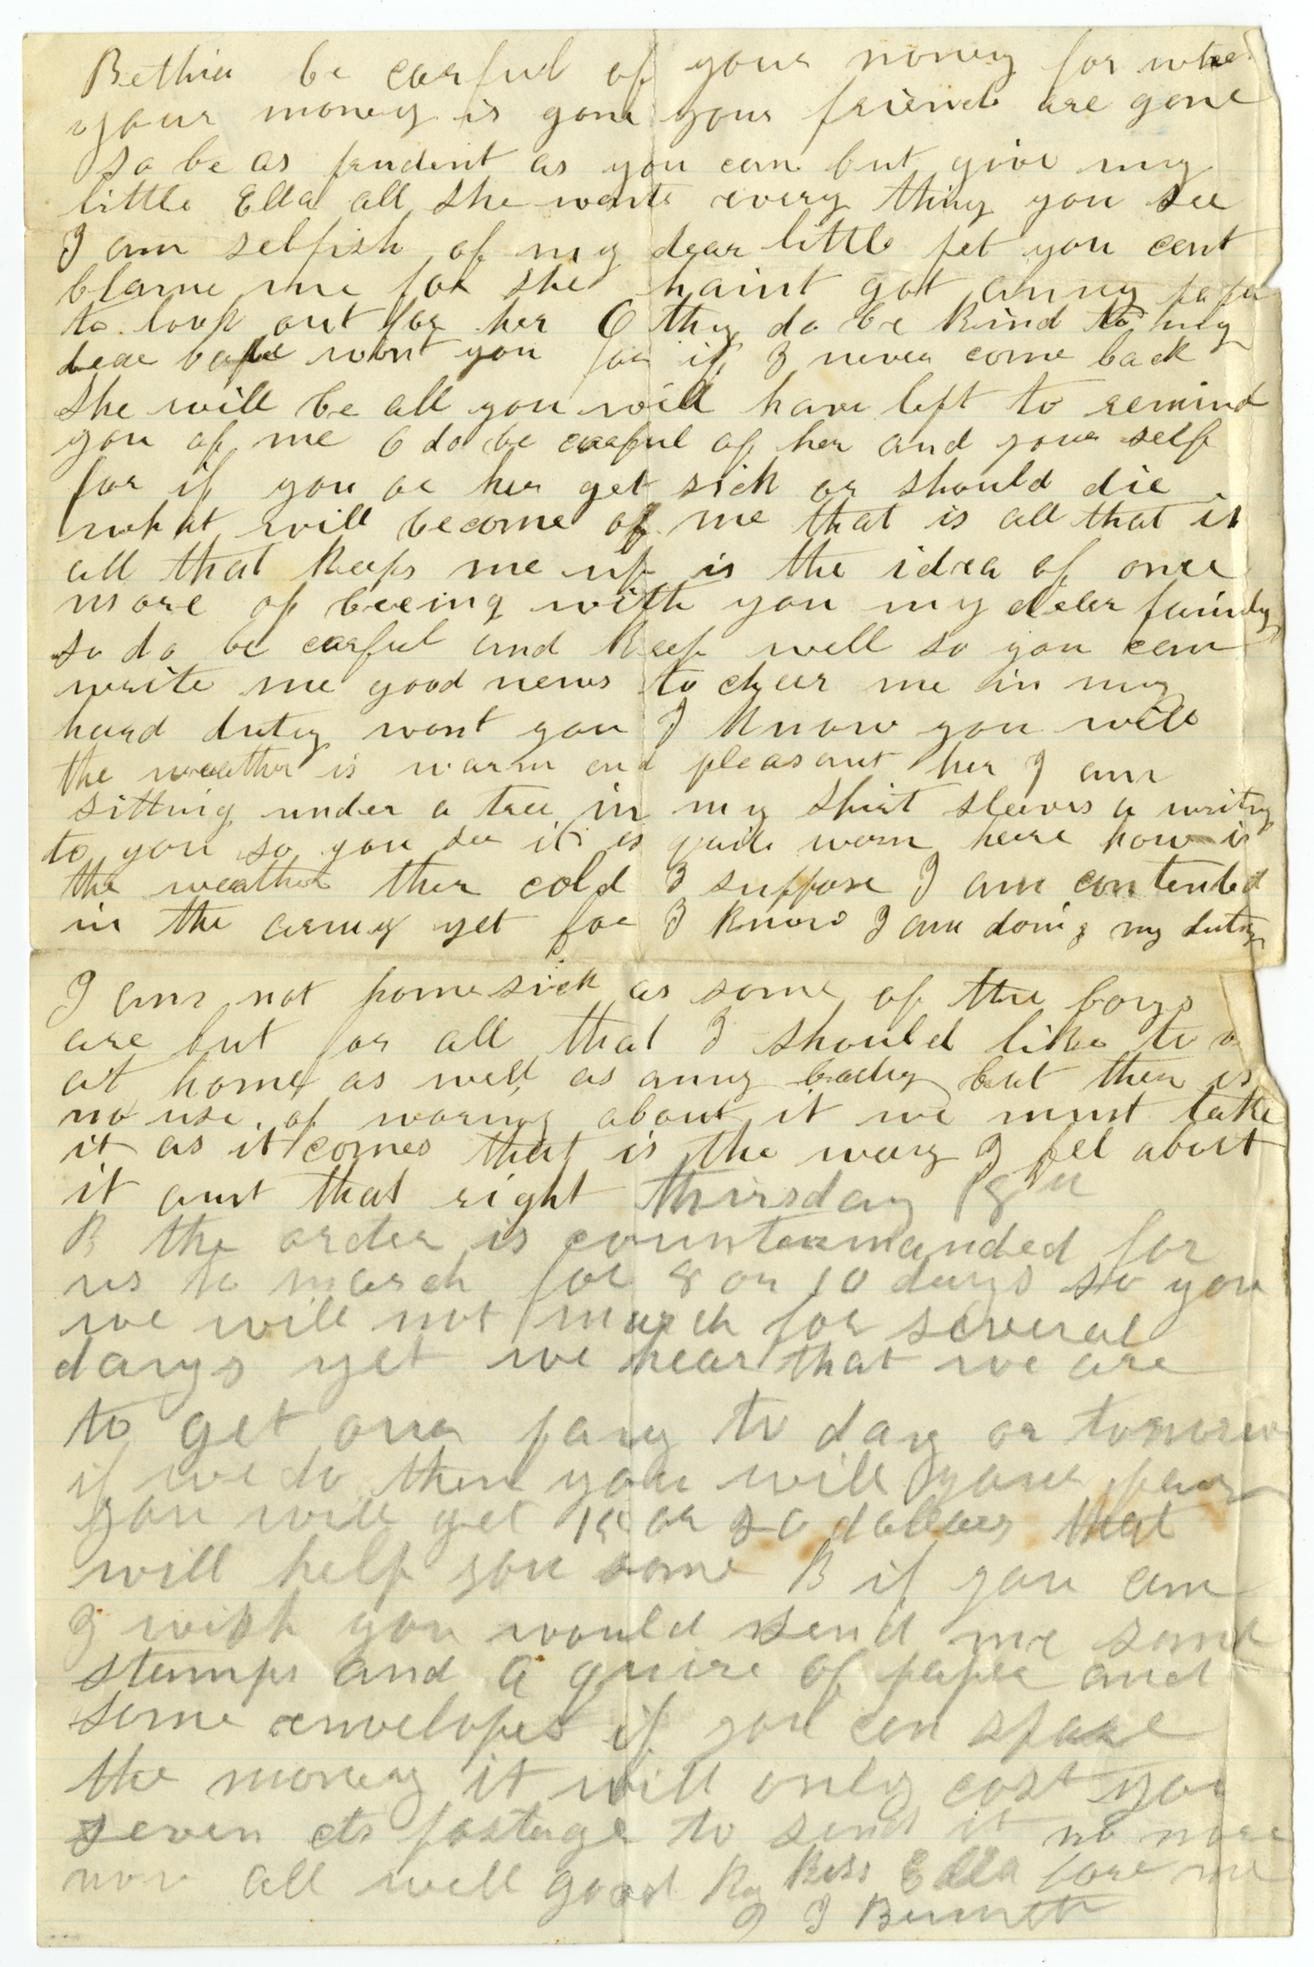 Bethia be carful of your money for whe
your money is gone your friends are gone
so be as prudent as you can but give my
little Ella all she wants every thing you see
I am selfish of my dear little pet you cant
blame me for she haint got anny papa
to look out for her O thy do be kind to my
dear babe wont you for if I never come back
she will be all you will have left to remind
you of me O do be carful of her and your self
for if you or her get sick or should die
what will become of me that is all that is
all that keeps me up is the idea of once
more of beeing with you my dear family
so do be carful and keep well so you can
write me good news to cheer me in my
hard duty wont you I know you will
the weather is warm and pleasant her I am
sitting under a tree in my shirt sleevs a writing
to you so you see it is quite warm here how is
the weather ther cold I suppose I am contented
in the army yet for I know I am doing my duty
I am not homesick as some of the boys
are but for all that I should like to
at home as well as anny body but ther is
no use of woring about it we must take
it as it comes that is the way I fel about
it aint that right Thirsday 18th
B the order is countermanded for
us to march for 8 or 10 days so you
we will not march for several
days yet we hear that we are
to get our pay to day or tomorow
if we do then you will your pay
you will get 15 or 20 dollars that
will help you some B if you can
I wish you would send me some
stamps and a quire of paper and
some envelopes if you can spare
the money it will only cost you
seven cts postage to send it no more
now all well good by kiss Ella for me
J J Bennett